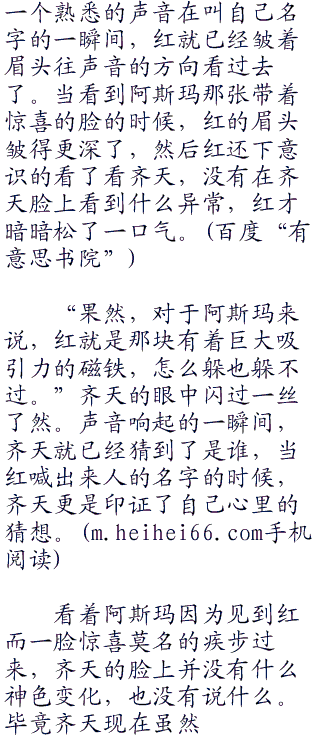 一个熟悉的声音在叫自己名
字的一瞬间，红就已经皱着
眉头往声音的方向看过去
了。当看到阿斯玛那张带着
惊喜的脸的时候，红的眉头
皱得更深了，然后红还下意
识的看了看齐天，没有在齐
天脸上看到什么异常，红才
暗暗松了一口气。(百度“有
意思书院”)
“果然，对于阿斯玛来
说，红就是那块有着巨大吸
引力的磁铁，怎么躲也躲不
过。”齐天的眼中闪过一丝
了然。声音响起的一瞬间，
齐天就已经猜到了是谁，当
红喊出来人的名字的时候，
齐天更是印证了自己心里的
猜想。(m.heihei66.com手机
阅读)
看着阿斯玛因为见到红
而一脸惊喜莫名的疾步过
来，齐天的脸上并没有什么
神色变化，也没有说什么。
毕竟齐天现在虽然